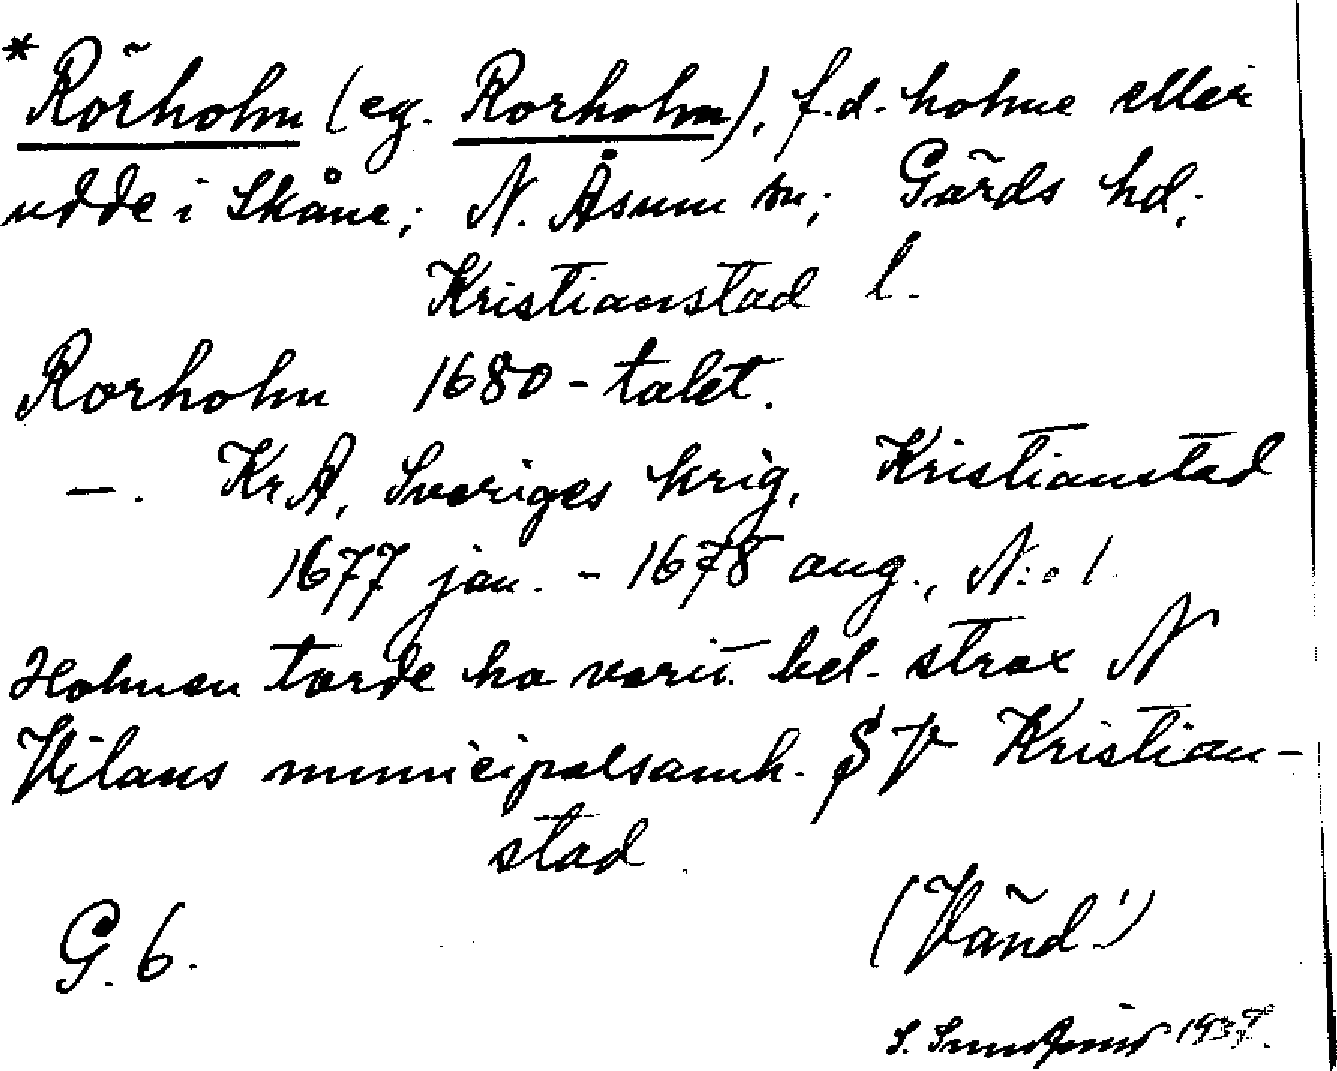 * Rörholm (eg. Rorholm), f.d. holme eller
udde i Skåne; N. Åsum sn; Gärds hd;
Kristianstad l.
Rorholm 1680-talet.
—. KrA, Sveriges krig, Kristianstad
1677 jan. - 1678 aug., N:o 1.
Holmen torde ha varit bel. strax N
Vilans municipalsamh. SV Kristian-
stad.
G. 6.
(Vänd!)
S. 1937.